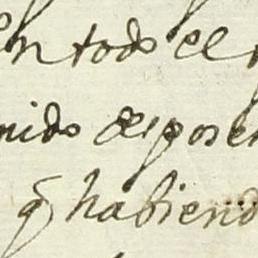 en todo el
nido de poser
q̃ habiend